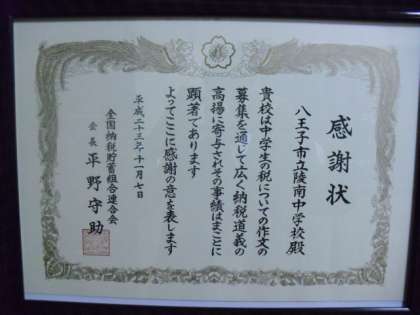 感謝状
八王子市立陵南中学校殿
貴校は中学生の税についての作文の
募集を通して広く納税道義の
高揚に寄与されその事績はまことに
顕著であります
よってここに感謝の意を表します
平成二十三年十一月七日
全国納税貯蓄組合連合会
会長 平野守助